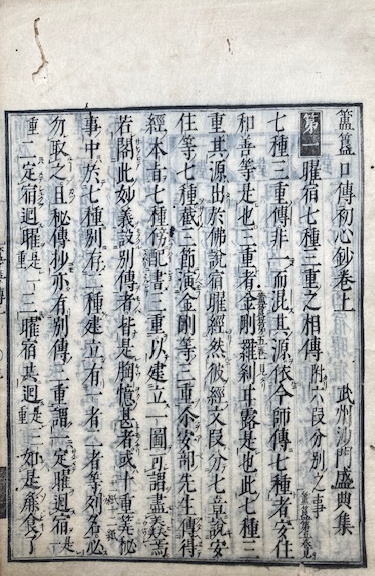 簠簋口傳初心鈔卷上　武州沙門盛典集
第一　曜宿七種三重之相傳　附六段分別之事
七種三重傳非一而混其源依今師傳七種者安住
和善等是也三重者金剛羅刹甘露是也此七種三
重其源出於佛說宿曜經然彼經文段分七章說安
住等七種截三節演金剛等三重尒安部先生傳得
經本吉七種傍配書三重以建立一圖可謂盡美矣
若閣此妙義設別傳者者或十重等秘
事中於七種別存二種建立有一者二者等列名必
勿取之且秘傳抄亦有別傳三重謂一定曜迴宿是
重二定宿迴曜是三曜宿共迴是三如是